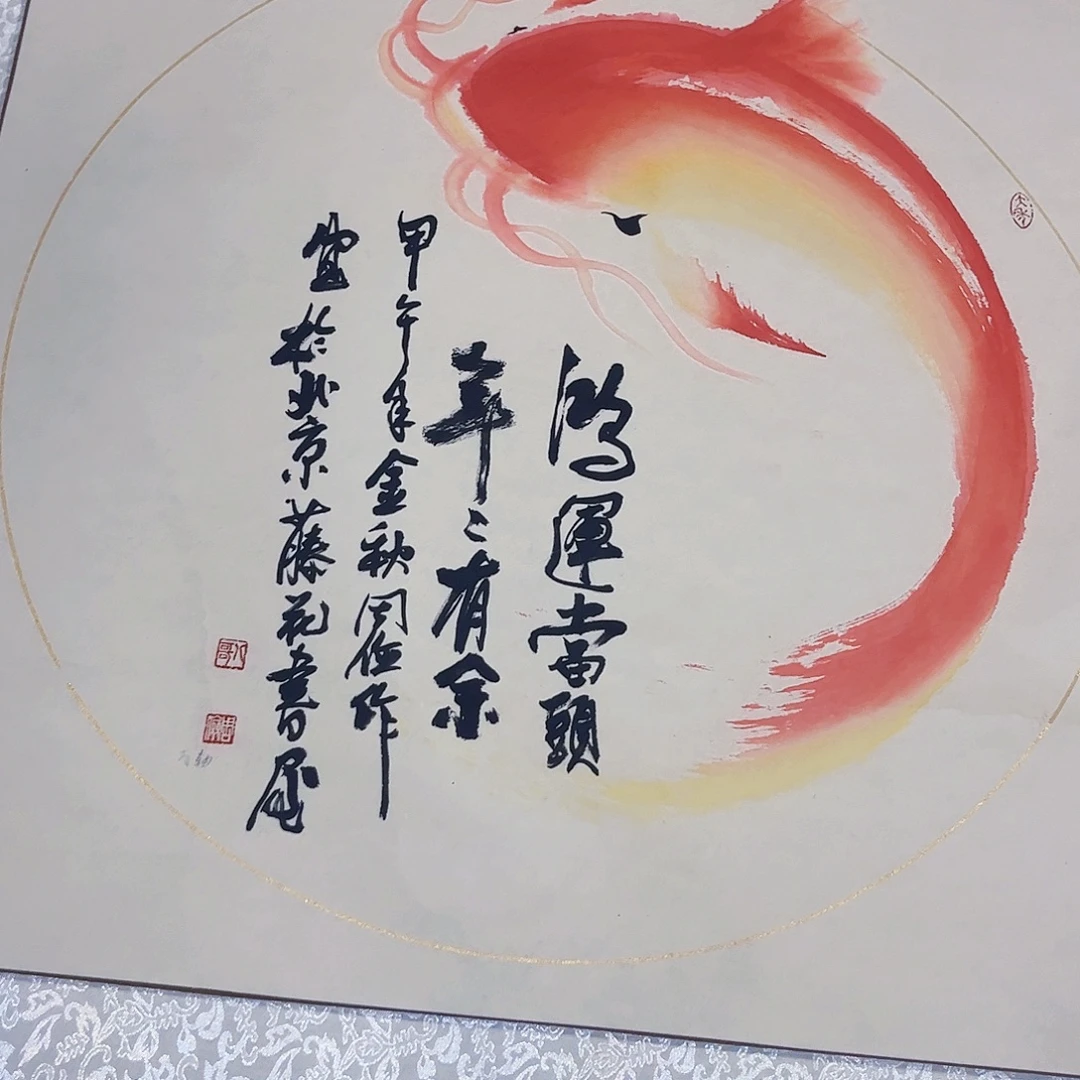 鴻運當頭
年〻有余
甲午年金秋周作
宜於北京藤花書屋